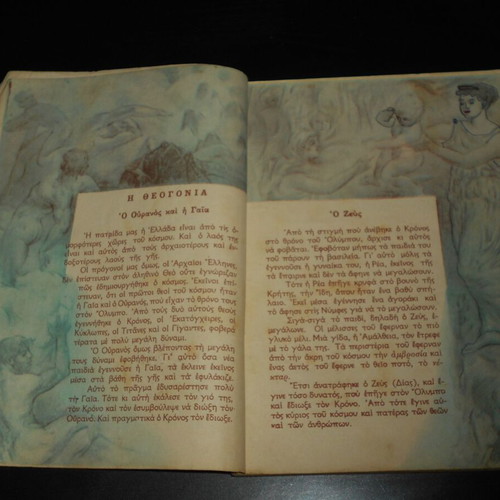 Η ΘΕΟΓΟΝΙΑ
Ὁ Οὐρανὸς καὶ ἡ Γαῖα
Ἡ πατρίδα μας ἡ Ἑλλάδα εἶναι ἀπὸ τὶς ὀ-
μορφότερες χῶρες τοῦ κόσμου. Καὶ ὁ λαός της
εἶναι καὶ αὐτὸς ἀπὸ τοὺς ἀρχαιοτέρους καὶ ἐν-
δοξοτέρους λαοὺς τῆς γῆς.
Οἱ πρόγονοί μας ὅμως, οἱ Ἀρχαῖοι Ἕλληνες,
δὲν ἐπίστευαν στὸν ἀληθινὸ Θεὸ οὔτε ἐγνώριζαν
πῶς ἐδημιουργήθηκε ὁ κόσμος. Ἐκεῖνοι ἐπίσ-
τευαν, ὅτι οἱ πρῶτοι θεοὶ τοῦ κόσμου ἦταν
ἡ Γαῖα καὶ ὁ Οὐρανός, ποὺ εἶχαν τὸ θρόνο τους
στὸν Ὄλυμπο. Ἀπὸ τοὺς δυὸ αὐτοὺς θεοὺς
ἐγεννήθηκε ὁ Κρόνος, οἱ Ἑκατόγχειρες, οἱ
Κύκλωπες, οἱ Τιτᾶνες καὶ οἱ Γίγαντες, φοβερὰ
τέρατα μὲ πολὺ μεγάλη δύναμη.
Ὁ Οὐρανὸς ὅμως βλέποντας τὴ μεγάλη
τους δύναμη ἐφοβήθηκε. Γι' αὐτὸ ὅσα νέα
παιδιὰ ἐγεννοῦσε ἡ Γαῖα, τὰ ἔκλεινε ἐκεῖνος
μέσα στὰ βάθη τῆς γῆς καὶ τὰ ἐφυλάκιζε.
Αὐτὸ τὸ πρᾶγμα ἐδυσαρέστησε πολὺ
τὴ Γαῖα. Τότε κι αὐτὴ ἐκάλεσε τὸν γιό της,
τὸν Κρόνο καὶ τὸν ἐσυμβούλεψε νὰ διώξη τὸν
Οὐρανό. Καὶ πραγματικὰ ὁ Κρόνος τὸν ἔδιωξε,
Ὁ Ζεὺς
Ἀπὸ τὴ στιγμὴ ποὺ ἀνέβηκε ὁ Κρόνος
στὸ θρόνο τοῦ Ὀλύμπου, ἄρχισε κι αὐτὸς
νὰ φοβᾶται. Ἐφοβόταν μήπως τὰ παιδιά του
τοῦ πάρουν τὴ βασιλεία. Γι' αὐτὸ μόλις τὰ
ἐγεννοῦσε ἡ γυναίκα του, ἡ Ρέα, ἐκεῖνος τῆς
τὰ ἔπαιρνε καὶ δὲν τὰ ἄφηνε νὰ μεγαλώσουν.
Τότε ἡ Ρέα ἐπῆγε κρυφὰ στὸ βουνὸ τῆς
Κρήτης, τὴν Ἴδη, ὅπου ἦταν ἕνα βαθὺ σπή-
λαιο. Ἐκεῖ μέσα ἐγέννησε ἕνα ἀγοράκι καὶ
τὸ ἄφησε στὶς Νύμφες γιὰ νὰ τὸ μεγαλώσουν.
Σιγὰ-σιγὰ τὸ παιδί, δηλαδὴ ὁ Ζεύς, ἐ-
μεγάλωνε. Οἱ μέλισσες τοῦ ἔφερναν τὸ πιὸ
γλυκὸ μέλι. Μιὰ γίδα, ἡ Ἀμάλθεια, τὸν ἔτρεφε
μὲ τὸ γάλα της. Τὰ περιστέρια τοῦ ἔφερναν
ἀπὸ τὴν ἄκρη τοῦ κόσμου τὴν ἀμβροσία καὶ
ἕνας ἀετὸς τοῦ ἔφερνε τὸ θεῖο ποτό, τὸ νέ-
κταρ.
Ἔτσι ἀνατράφηκε ὁ Ζεὺς (Δίας), καὶ ἔ-
γινε τόσο δυνατός, ποὺ ἐπῆγε στὸν Ὄλυμπο
καὶ ἔδιωξε τὸν Κρόνο. Ἀπὸ τότε ἔγινε αὐ-
τὸς κύριος τοῦ κόσμου καὶ πατέρας τῶν θεῶν
καὶ τῶν ἀνθρώπων.